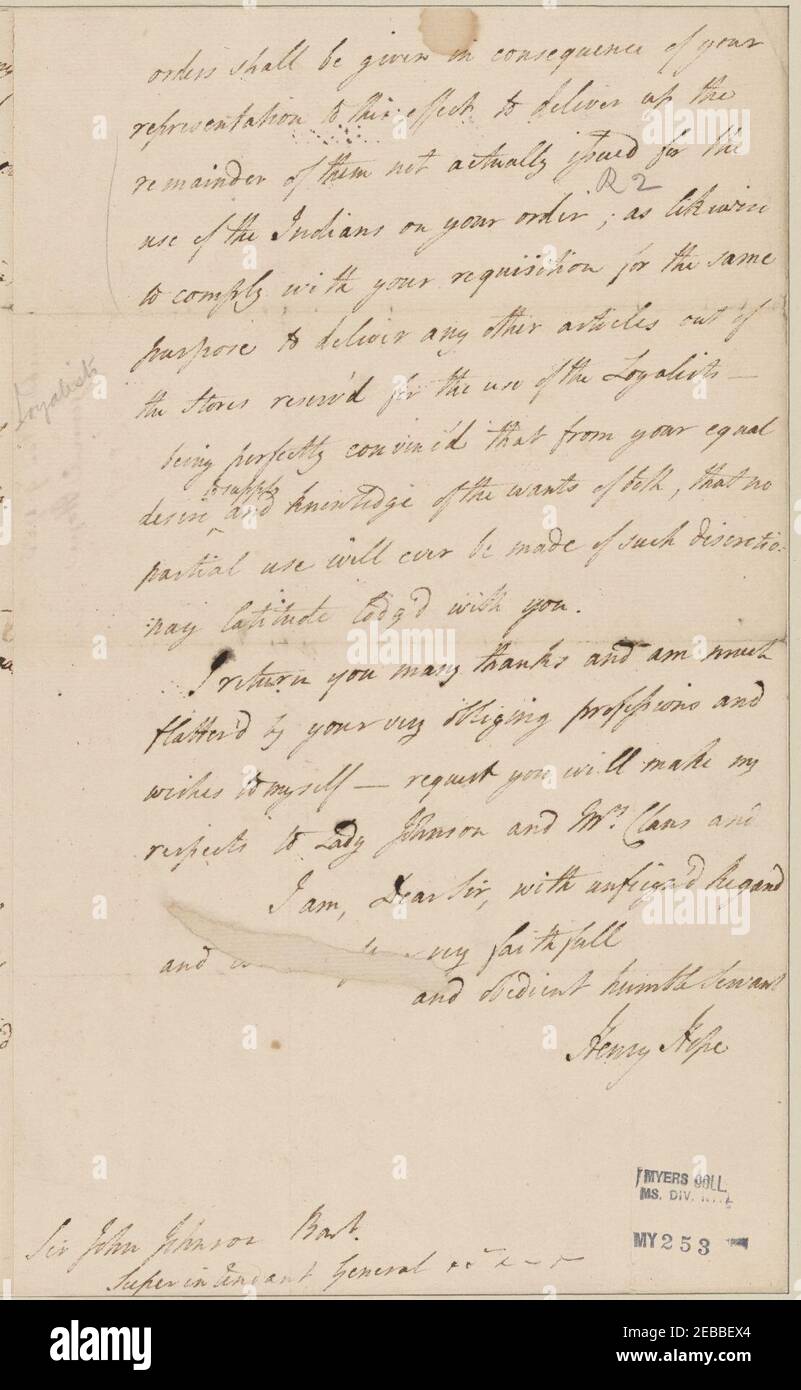 orders shall be given in consequence of your
representation to this effect to deliver up the
remainder of them not actually issued for the
R 2
use of the Indians on your order; as likewise
to comply with your requisition for the same
purpose to deliver any other articles out of
the Stores reserv'd for the use of the Loyalists —
Loyalists
being perfectly convinc'd that from your equal
to supply
desire ‸ and knowledge of the wants of both, that no
partial use will ever be made of such discretio-
nary latitude lodg'd with you.
I return you many thanks and am much
flatter'd by your very obliging professions and
wishes to myself — request you will make my
respects to Lady Johnson and Mrs. Claus and
I am, Dear Sir, with unfeign'd Regard
and very faithfull
and obedient humble Servant
Henry Hope
MYERS COLL
MS. DIV. N.Y.
MY 253
Sir John Johnson Bart.
Superintendant General
alamy
Image ID: 2EBBEX4
www.alamy.com